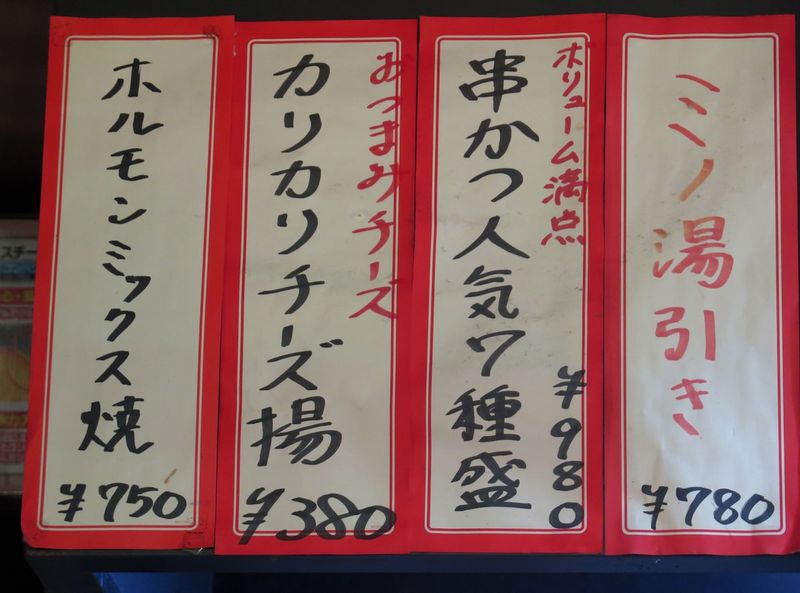 ミノ湯引き
¥780
ボリューム満点
串かつ人気7種盛
¥980
おつまみチーズ
カリカリチーズ揚
¥380
ホルモンミックス焼
¥750